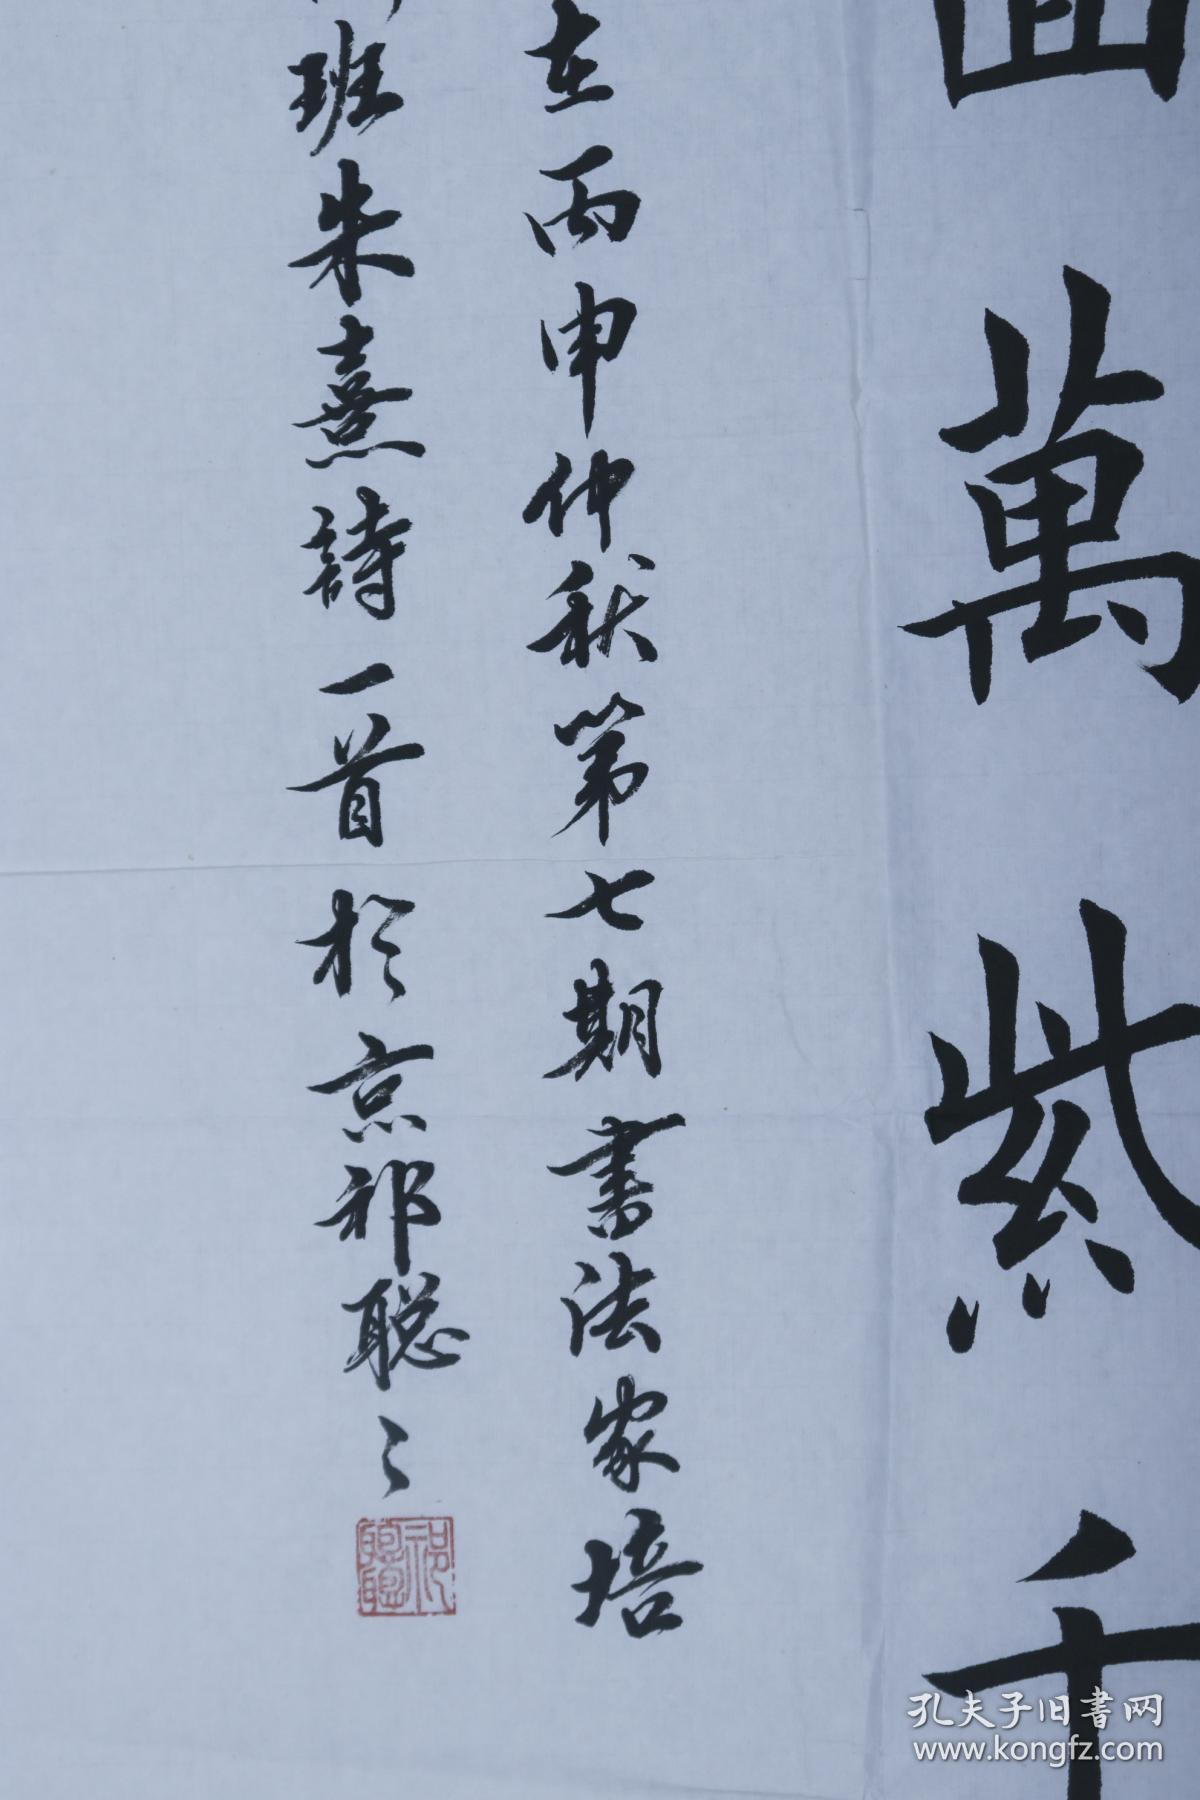 面萬紫千
在丙申仲秋第七期書法家培
班朱熹詩一首於京祁聪〻
祁聰聰
孔夫子旧書网
www.kongfz.com